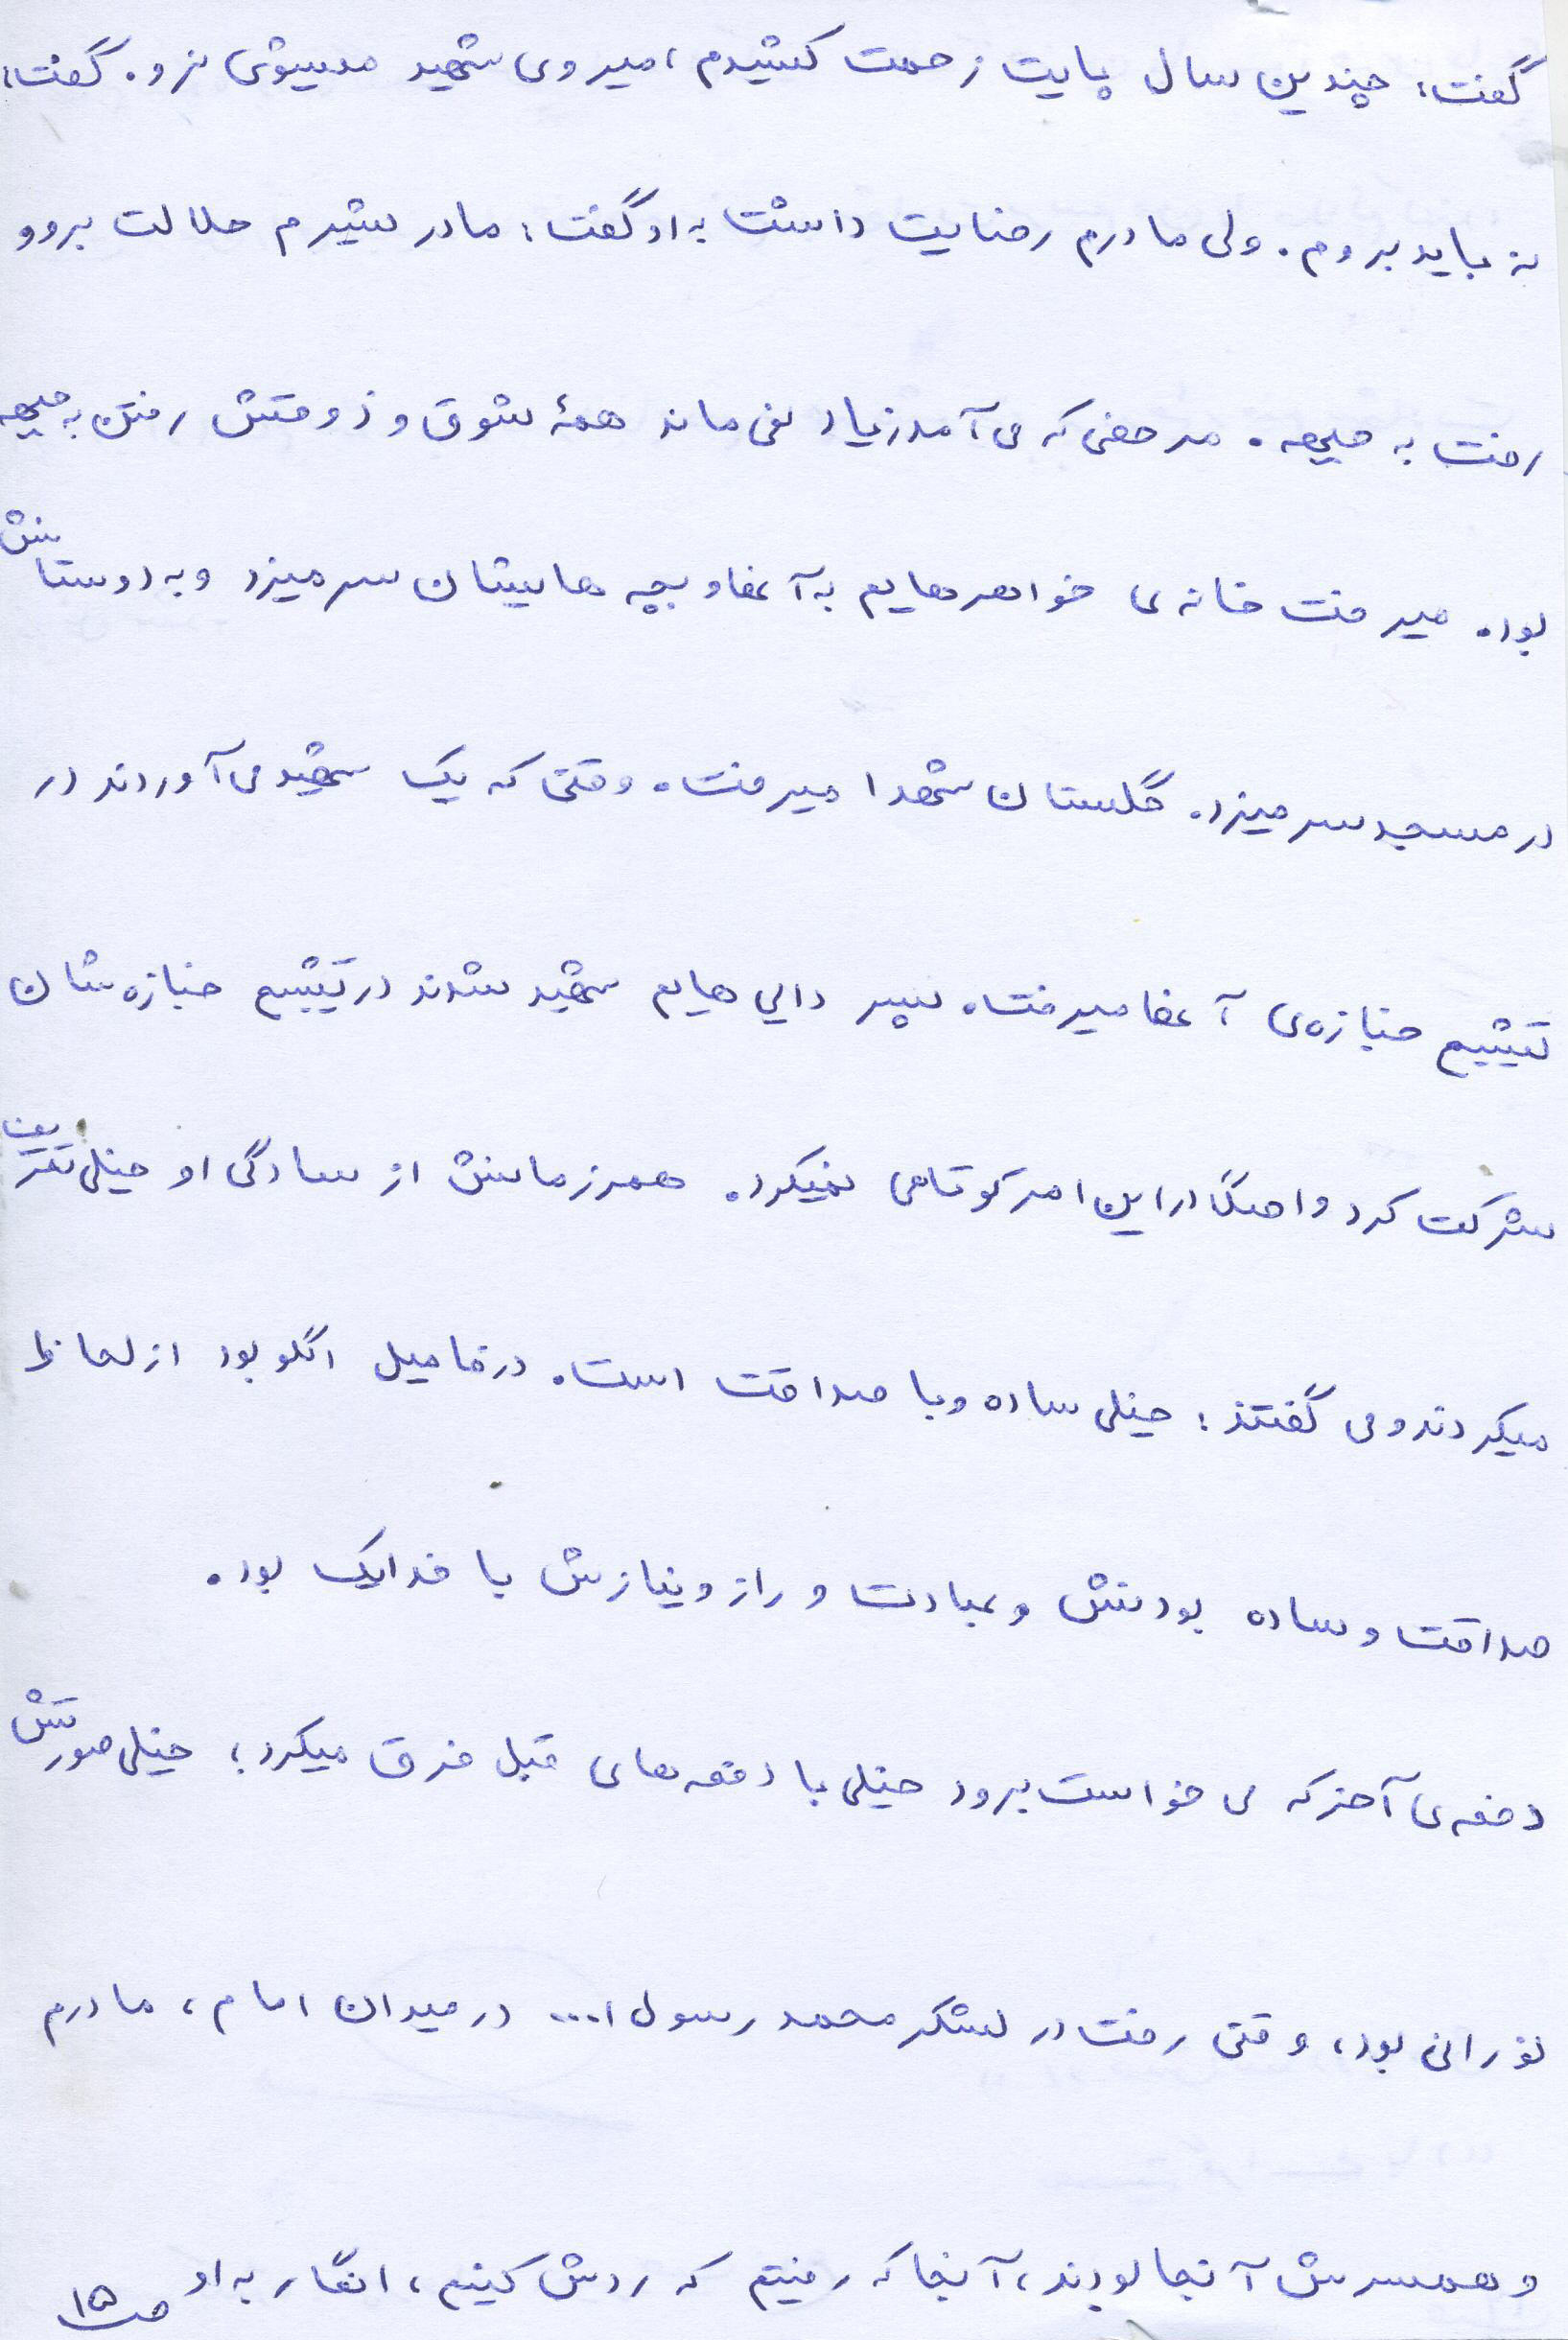 گفت: چندین سال پایت زحمت کشیدم، میروی شهید میشوی نرو. گفت:
نه باید بروم. ولی مادرم رضایت داشت به او گفت: مادر شیرم حلالت برو و
رفت به جبهه. مرخصی که می آمد زیاد نمی ماند همهٔ شوق و ذوقش رفتن به جبهه
بود. میرفت خانه ی خواهرهایم به آنها و بچه هایشان سر میزد و به دوستانش
در مسجد سر میزد. گلستان شهدا میرفت. وقتی که یک شهید می آوردند در
تشییع جنازه ی آنها میرفت. پسر دایی هایم شهید شدند در تشییع جنازه شان
شرکت کرد و اصلاً در این امر کوتاهی نمیکرد. همرزمانش از سادگی او خیلی تعریف
میکردند و می گفتند: خیلی ساده و با صداقت است. در فامیل الگو بود از لحاظ
صداقت و ساده بودنش و عبادت و راز و نیازش با خدا یک بود.
دفعه ی آخر که می خواست برود خیلی با دفعه های قبل فرق میکرد؛ خیلی صورتش
نورانی بود، وقتی رفت در لشگر محمد رسول ا... در میدان امام، مادرم
و همسرش آنجا بودند، آنجا که رفتیم که ردش کنیم، انگار به او
ص ۱۵